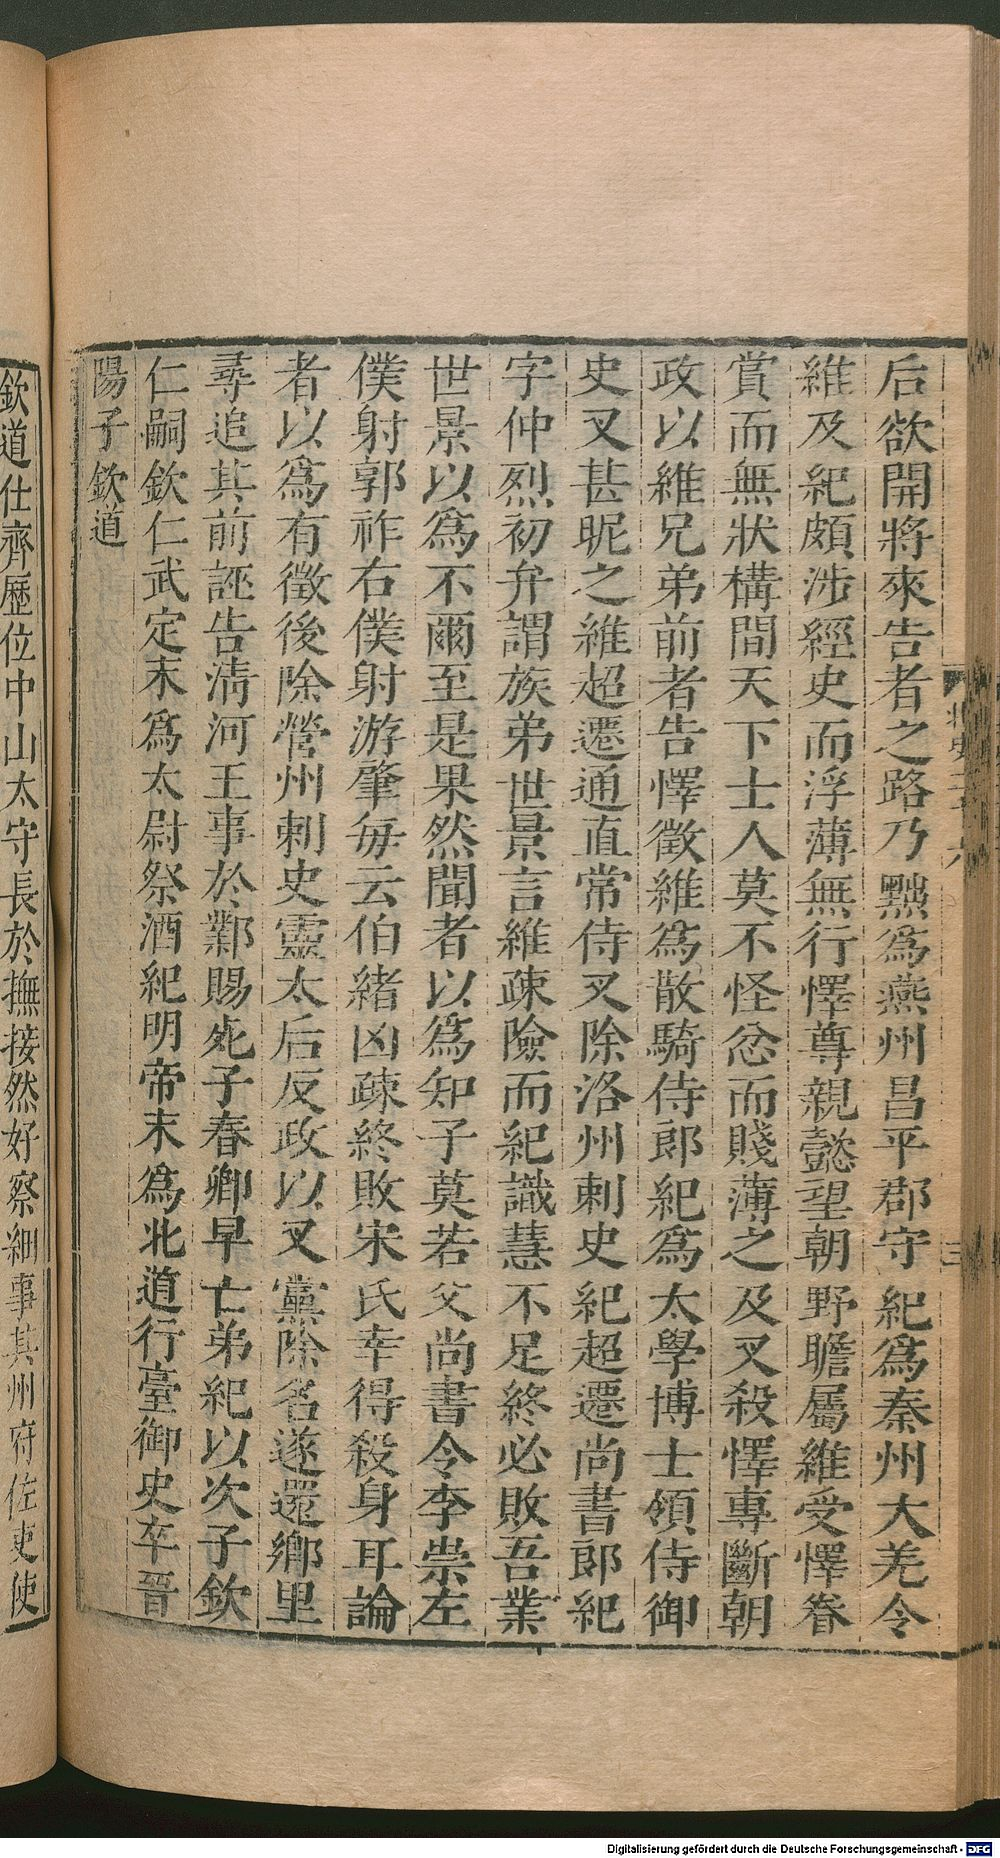 后欲開將來告者之路乃黜爲燕州昌平郡守紀爲秦州大羌令
維及紀頗涉經史而浮薄無行懌尊親懿望朝野瞻屬維受懌眷
賞而無狀構間天下士人莫不怪忿而賤薄之及叉殺懌專斷朝
政以維兄弟前者告懌徵維爲散騎侍郎紀爲太學博士領侍御
史叉甚昵之維超遷通直常侍叉除洛州刺史紀超遷尚書郎紀
字仲烈初弁謂族弟世景言維疎險而紀識慧不足終必敗吾業
世景以爲不爾至是果然聞者以爲知子莫若父尚書令李崇左
僕射郭祚右僕射游肇每云伯緒凶疎終敗宋氏幸得殺身耳論
者以爲有徵後除營州刺史靈太后反政以叉黨除名遂還鄉里
尋追其前誣告淸河王事於鄴賜死子春卿早亡弟紀以次子欽
仁嗣欽仁武定末爲太尉祭酒紀明帝末爲北道行臺御史卒晉
陽子欽道
欽道仕齊歷位中山太守長於撫接然好察細事其州府佐吏使
Digitalisierung gefördert durch die Deutsche Forschungsgemeinschaft - DFG